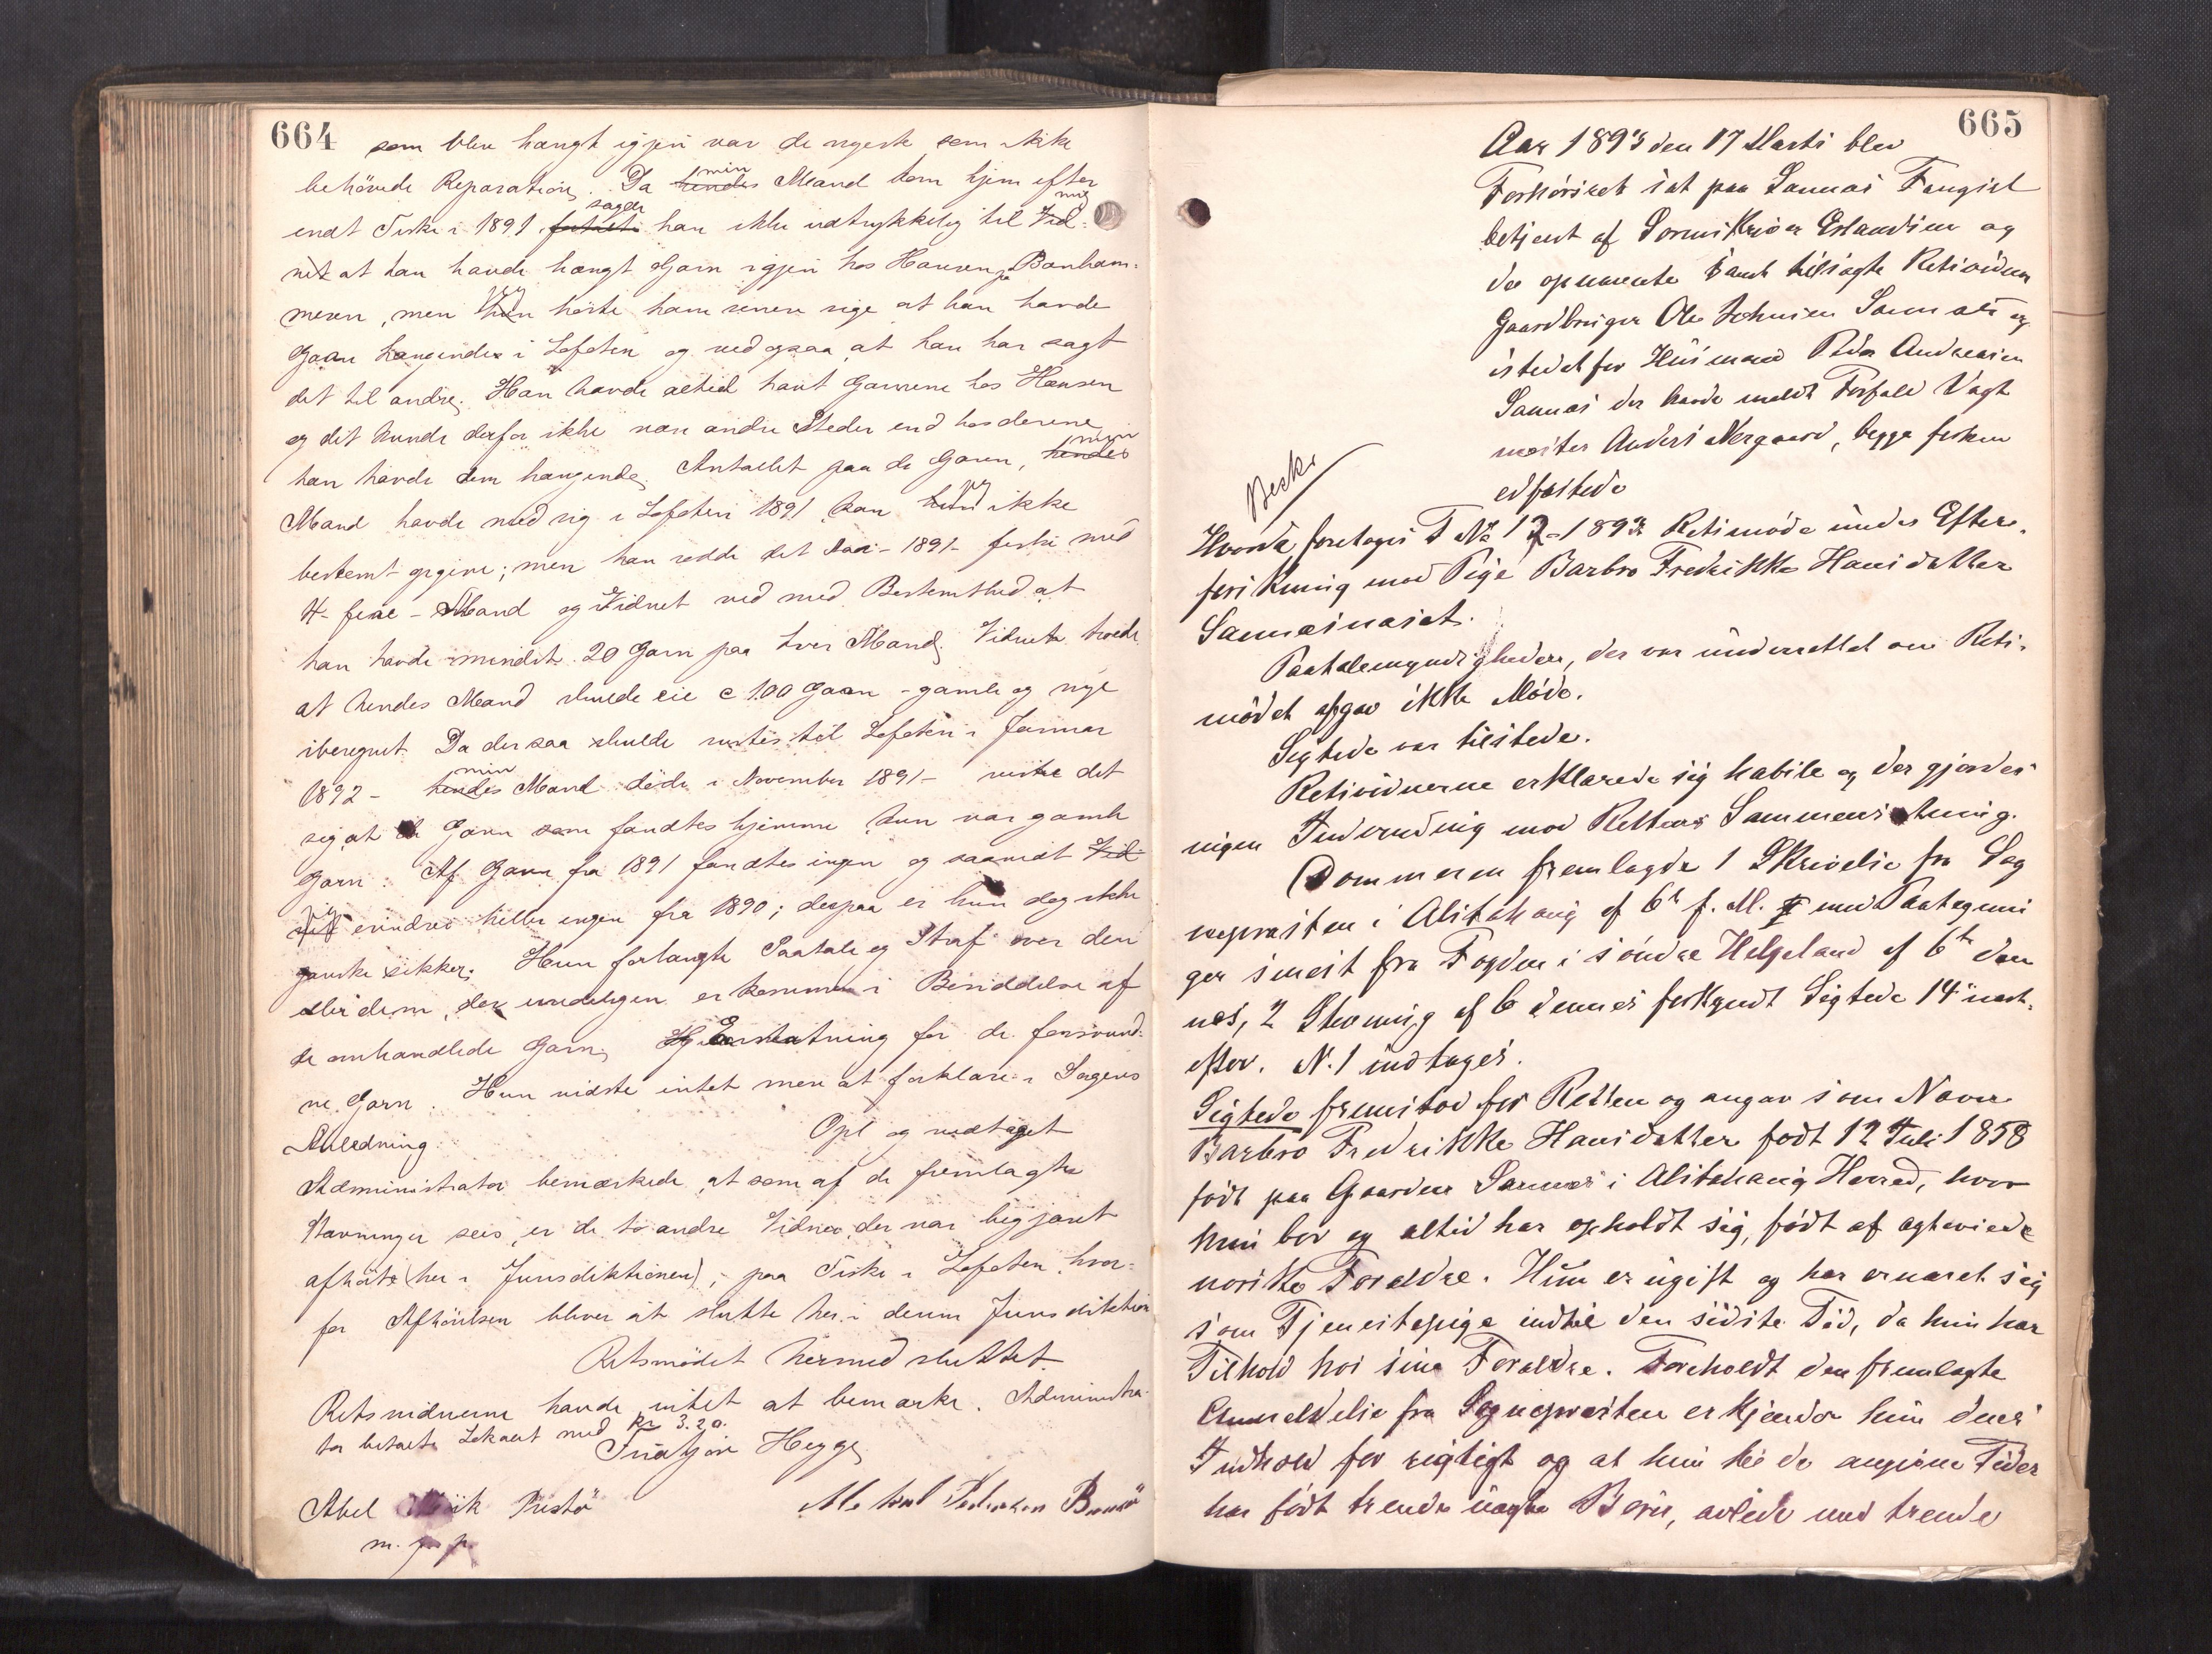 664
som blev hængt igjen var de nyeste som ikke
behövede Reparation. Da hendes min Mand kom hjem efter
endt Fiske i 1891 fortalte sagde han ikke udtrykkelig til Vid- mig
net at han havde hængt Garn igjen hos Hansen paa Bonham-
meren, men hun jeg hörte ham senere sige at han havde
Garn hængende i Lofoten og ved ogsaa at han har sagt
det til andre. Han havde altid havt Garnene hos Hansen
og det kunde derfor ikke være andre Steder end hos denne
han havde dem hængende. Antallet paa de Garn, hendes min
Mand havde med sig i Lofoten 1891 kan hun jeg ikke
bestemt opgive; men han rodde det Aar - 1891 - fiske med
4 - fire - Mand og Vidnet ved med Bestemthed at
han havde mindst 20 Garn paa hver Mand. Vidnet troede
at hendes Mand skulde eie c 100 Garn - gamle og nye
iberegnet. Da der saa skulde rustes til Lofoten i Januar
1892 - hendes min Mand döde i November 1891 - viste det
sig at de Garn som fandtes hjemme kun var gamle
Garn. Af Garn fra 1891 fandtes ingen og saavidt Vid-
net jeg erindres heller ingen fra 1890; derpaa er hun dog ikke
ganske sikker. Hun forlangte Paatale og Straf over den
eller dem, der uredeligen er kommen i Besiddelse af
de omhandlede Garn. Og Erstatning for de forsvund-
ne Garn. Hun vidste intet mere at forklare i Sagens
Anledning.
Opl og vedtaget
Administrator bemærkede, at som af de fremlagte
Stævninger sees, er de to andre Vidner, der var begjæret
afhört (her i Jurisdiktionen), paa Fiske i Lofoten, hvor-
for Afhörelsen bliver at slutte her i denne Jurisdiktion
Retsmödet hermed sluttet.
Retsvidnerne havde intet at bemærke. Administra-
tor betalte Lokalet med Kr 3.20.
Hegge
Abel
m. p. p.
665
Aar 1893 den 17 Marts blev
Forhörsret sat paa Sannæs Fengsel
betjent af Sorenskriver Erlandsen og
de opnævnte samt tilsagte Retsvidner
Gaardbruger Ole Johnsen Sannæs og
istedetfor Husmand Peder Andreasen
Sannæs der havde meldt Forfald Vagt
mester Anders Nergaard, begge forhen
edfæstede
Besk.
Hvorda foretoges F No 12 - 1893 Retsmöde under Efter-
forskning mod Pige Barbro Fredrikke Hansdatter
Sannæsnæset.
Paatalemyndigheden, der var underrettet om Rets-
mödet afgav ikke Möde.
Sigtede var tilstede.
Retsvidnerne erklærede sig habile og der gjordes
ingen Indvending mod Rettens Sammensætning.
Dommeren fremlagde 1 Skrivelse fra Sog
nepresten i Alstahaug af 6te f. M. med Paategnin
ger sinest fra Fogden i söndre Helgeland af 6te den
nes, 2 Stevning af 6 dennes forkyndt Sigtede 14 næst-
efter. N. 1 indtages.
Sigtede fremstod for Retten og angav som Navn
Barbro Fredrikke Hansdatter født 12 Juli 1858
födt paa Gaarden Sannæs i Alstahaug Herred, hvor
hun bor og altid har opholdt sig, födt af ægteviede
norske Forældre. Hun er ugift og har ernæret sig
som Tjenestepige indtil den sidste Tid, da hun har
Tilhold hos sine Forældre. Foreholdt den fremlagte
Anmeldelse fra Sognepresten erkjender hun dens
Indhold for rigtigt og at hun til de angivne Tider
har födt trende uægte Börn, avlede med trende